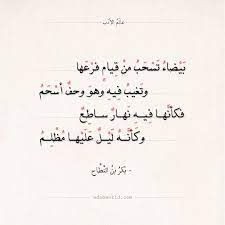 عالم الأدب
بَيْضَاءُ تَسْحَبُ مِنْ قِيَامٍ فَرْعَهَا
وَتَغِيبُ فِيهِ وَهوَ وَحْفٌ أَسْحَمُ
فَكَأَنَّهَا فِيهِ نَهَارٌ سَاطِعٌ
وَكَأَنَّهُ لَيْلٌ عَلَيْهَا مُظْلِمُ
- بَكْرُ بْنُ النَّطَّاحِ -
adabworld.com